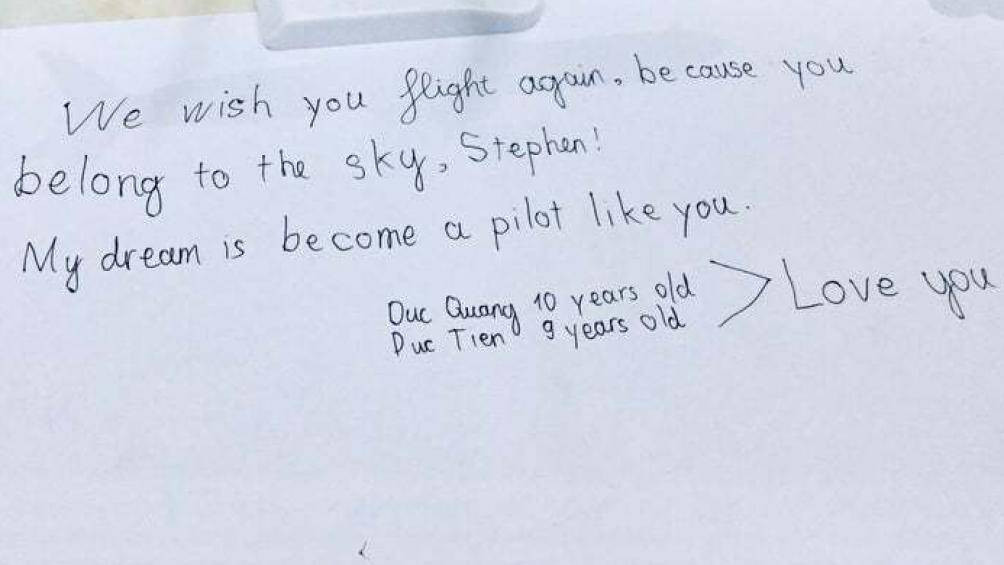 We wish you flight again, because you
belong to the sky, Stephen!
My dream is become a pilot like you.
Duc Quang 10 years old
Duc Tien 9 years old > Love you